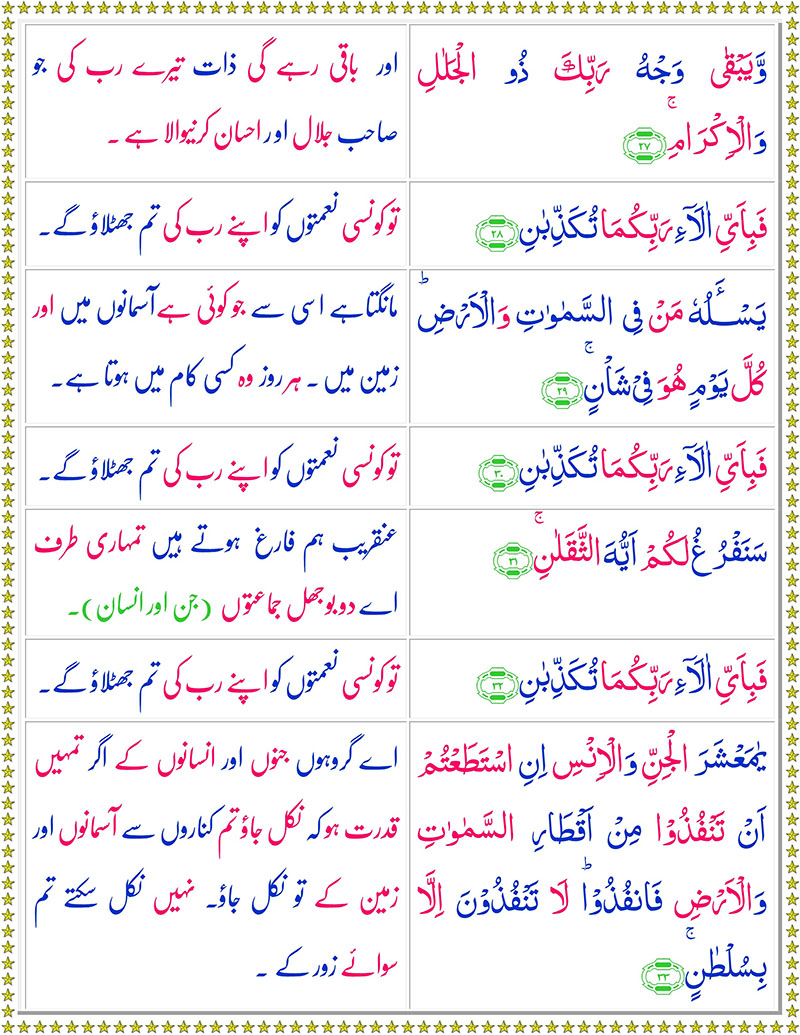 وَّيَبْقٰى وَجْهُ رَبِّكَ ذُو الْجَلٰلِ
وَالْاِكْرَامِۚ ﴿۲۷﴾
اور باقی رہے گی ذات تیرے رب کی جو
صاحب جلال اور احسان کرنیوالا ہے ۔
فَبِاَىِّ اٰلَآءِ رَبِّكُمَا تُكَذِّبٰنِ ﴿۲۸﴾
تو کونسی نعمتوں کو اپنے رب کی تم جھٹلاؤ گے۔
يَسْـَٔـلُهٗ مَنْ فِى السَّمٰوٰتِ وَالْاَرْضِؕ
كُلَّ يَوْمٍ هُوَ فِىْ شَاْنٍۚ ﴿۲۹﴾
مانگتا ہے اسی سے جو کوئی ہے آسمانوں میں اور
زمین میں ۔ ہر روز وہ کسی کام میں ہوتا ہے۔
فَبِاَىِّ اٰلَآءِ رَبِّكُمَا تُكَذِّبٰنِ ﴿۳۰﴾
تو کونسی نعمتوں کو اپنے رب کی تم جھٹلاؤ گے۔
سَنَفْرُغُ لَكُمْ اَيُّهَ الثَّقَلٰنِۚ ﴿۳۱﴾
عنقریب ہم فارغ ہوتے ہیں تمہاری طرف
اے دو بوجھل جماعتوں (جن اور انسان)۔
فَبِاَىِّ اٰلَآءِ رَبِّكُمَا تُكَذِّبٰنِ ﴿۳۲﴾
تو کونسی نعمتوں کو اپنے رب کی تم جھٹلاؤ گے۔
يٰمَعْشَرَ الْجِنِّ وَالْاِنْسِ اِنِ اسْتَطَعْتُمْ
اَنْ تَنْفُذُوْا مِنْ اَقْطَارِ السَّمٰوٰتِ
وَالْاَرْضِ فَانْفُذُوْاؕ لَا تَنْفُذُوْنَ اِلَّا
بِسُلْطٰنٍۚ ﴿۳۳﴾
اے گروہوں جنوں اور انسانوں کے اگر تمہیں
قدرت ہو کہ نکل جاؤ تم کناروں سے آسمانوں اور
زمین کے تو نکل جاؤ۔ نہیں نکل سکتے تم
سوائے زور کے ۔